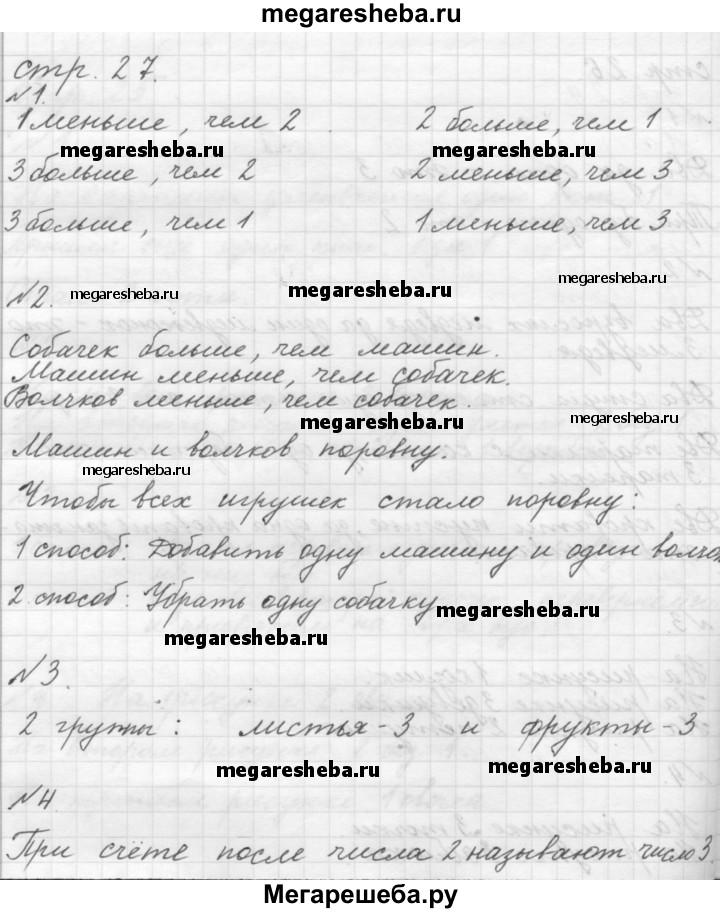 megaresheba.ru
стр. 27.
№1.
1 меньше, чем 2   2 больше, чем 1
megaresheba.ru   megaresheba.ru
3 больше, чем 2   2 меньше, чем 3
3 больше, чем 1   1 меньше, чем 3
megaresheba.ru
№2.   megaresheba.ru   megaresheba.ru
Собачек больше, чем машин.
Машин меньше, чем собачек.
Волчков меньше, чем собачек.
megaresheba.ru   megaresheba.ru
Машин и волчков поровну.
megaresheba.ru
Чтобы всех игрушек стало поровну:
1 способ: Добавить одну машину и один волчок
2 способ: Убрать одну собачку megaresheba.ru
megaresheba.ru
№3.
2 группы: листья-3 и фрукты-3
megaresheba.ru   megaresheba.ru
№4
При счёте после числа 2 называют число 3.
Мегарешеба.ру